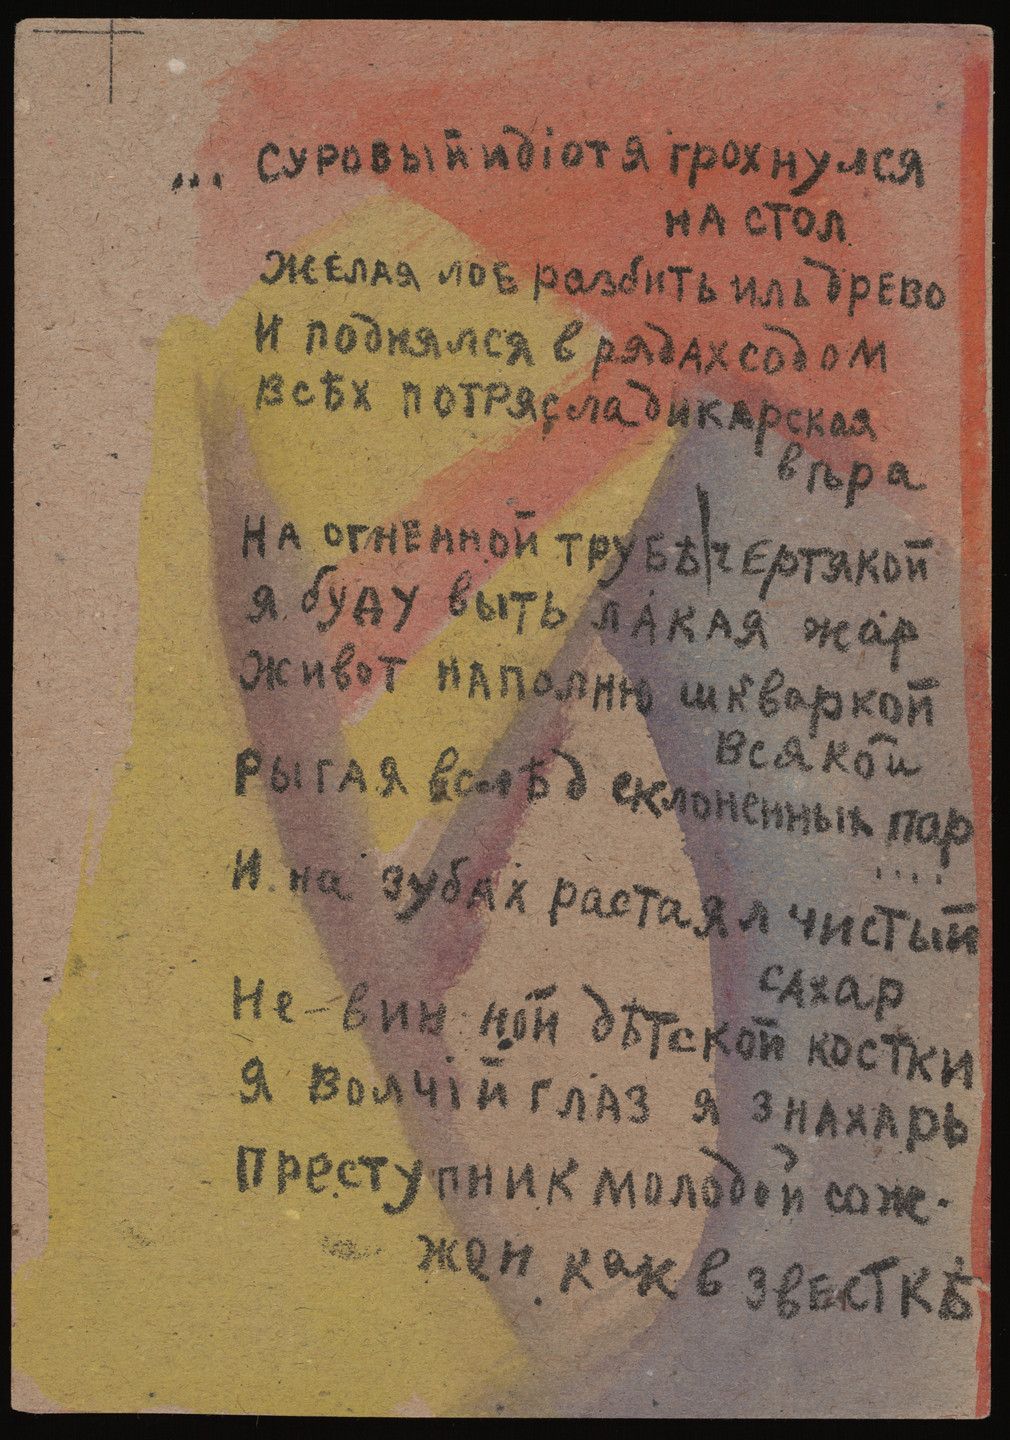 ... суровый идіот я грохнулся
на стол
желая лоб разбить иль древо
и поднялся в рядах содом
всѣх потрясла дикарская
вѣра
На огненной трубѣ чертякой
я буду выть лакая жар
живот наполню шкваркой
всякой
рыгая вслѣд склоненных пар
....
и на зубах растаял чистый
сахар
Не-винной дѣтской костки
я волчій глаз я знахарь
преступник молодой соже-
жен как в звесткѣ